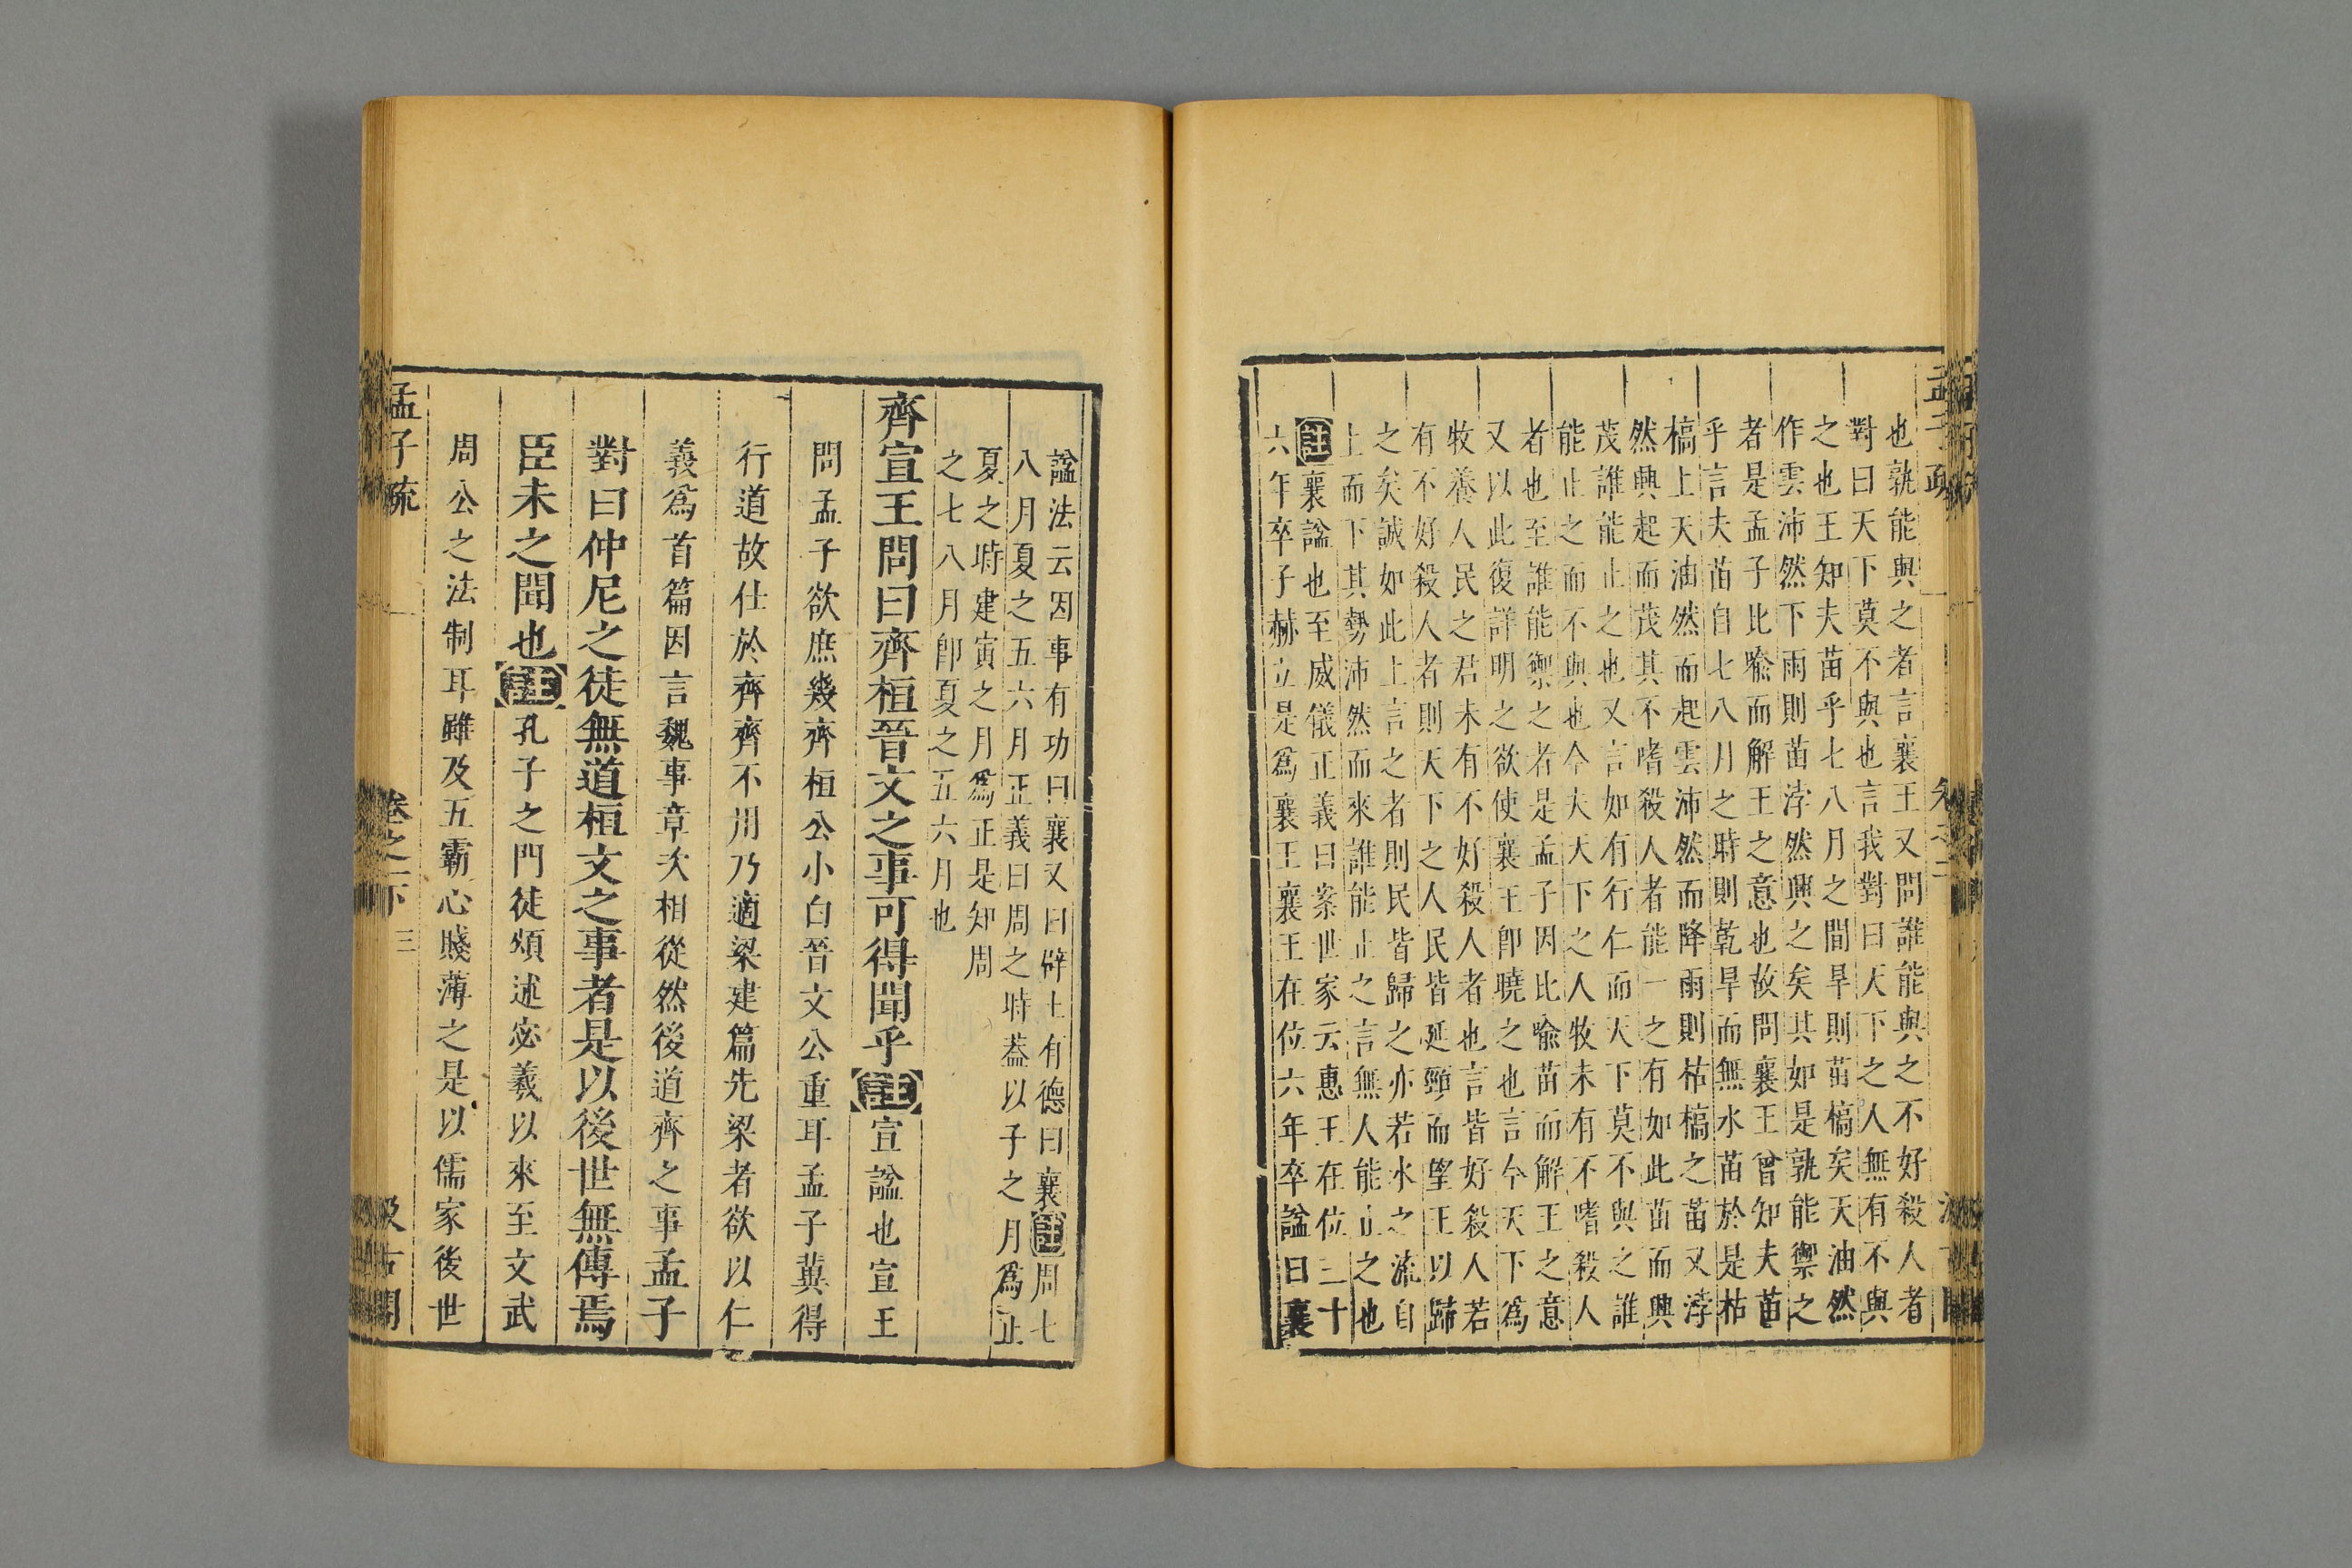 也孰能與之者言襄王又問誰能與之不好殺人者
對曰天下莫不與也言我對曰天下之人無有不與
之也王知夫苗乎七八月之間旱則苗槁矣天油然
作雲沛然下雨則苗浡然興之矣其如是孰能禦之
者是孟子比喻而解王之意也故問襄王曾知夫苗
乎言夫苗自七八月之時則乾旱而無水苗於是枯
槁上天油然而起雲沛然而降雨則枯槁之苗又浡
然興起而茂其不嗜殺人者能一之有如此苗而興
茂誰能止之也又言如有行仁而天下莫不與之誰
能止之而不與也今夫天下之人牧未有不嗜殺人
者也至誰能禦之者是孟子因比喻苗而解王之意
又以此復詳明之欲使襄王卽曉之也言今天下爲
牧養人民之君未有不好殺人者也言皆好殺人若
有不好殺人者則天下之人民皆延頸而望王以歸
之矣誠如此上言之者則民皆歸之亦若水之流自
上而下其勢沛然而來誰能止之言無人能止之也
註襄謚也至威儀正義曰案世家云惠王在位三十
六年卒子赫立是爲襄王襄王在位六年卒謚曰襄
謚法云因事有功曰襄又曰辟土有德曰襄註周七
八月夏之五六月正義曰周之時蓋以子之月爲正
夏之時建寅之月爲正是知周
之七八月卽夏之五六月也
齊宣王問曰齊桓晉文之事可得聞乎註宣謚也宣王
問孟子欲庶幾齊桓公小白晉文公重耳孟子冀得
行道故仕於齊齊不用乃適梁建篇先梁者欲以仁
義爲首篇因言魏事章次相從然後道齊之事孟子
對曰仲尼之徒無道桓文之事者是以後世無傳焉
臣未之聞也註孔子之門徒頌述宓羲以來至文武
周公之法制耳雖及五霸心賤薄之是以儒家後世
孟子疏 卷之一下 三 汲古閣